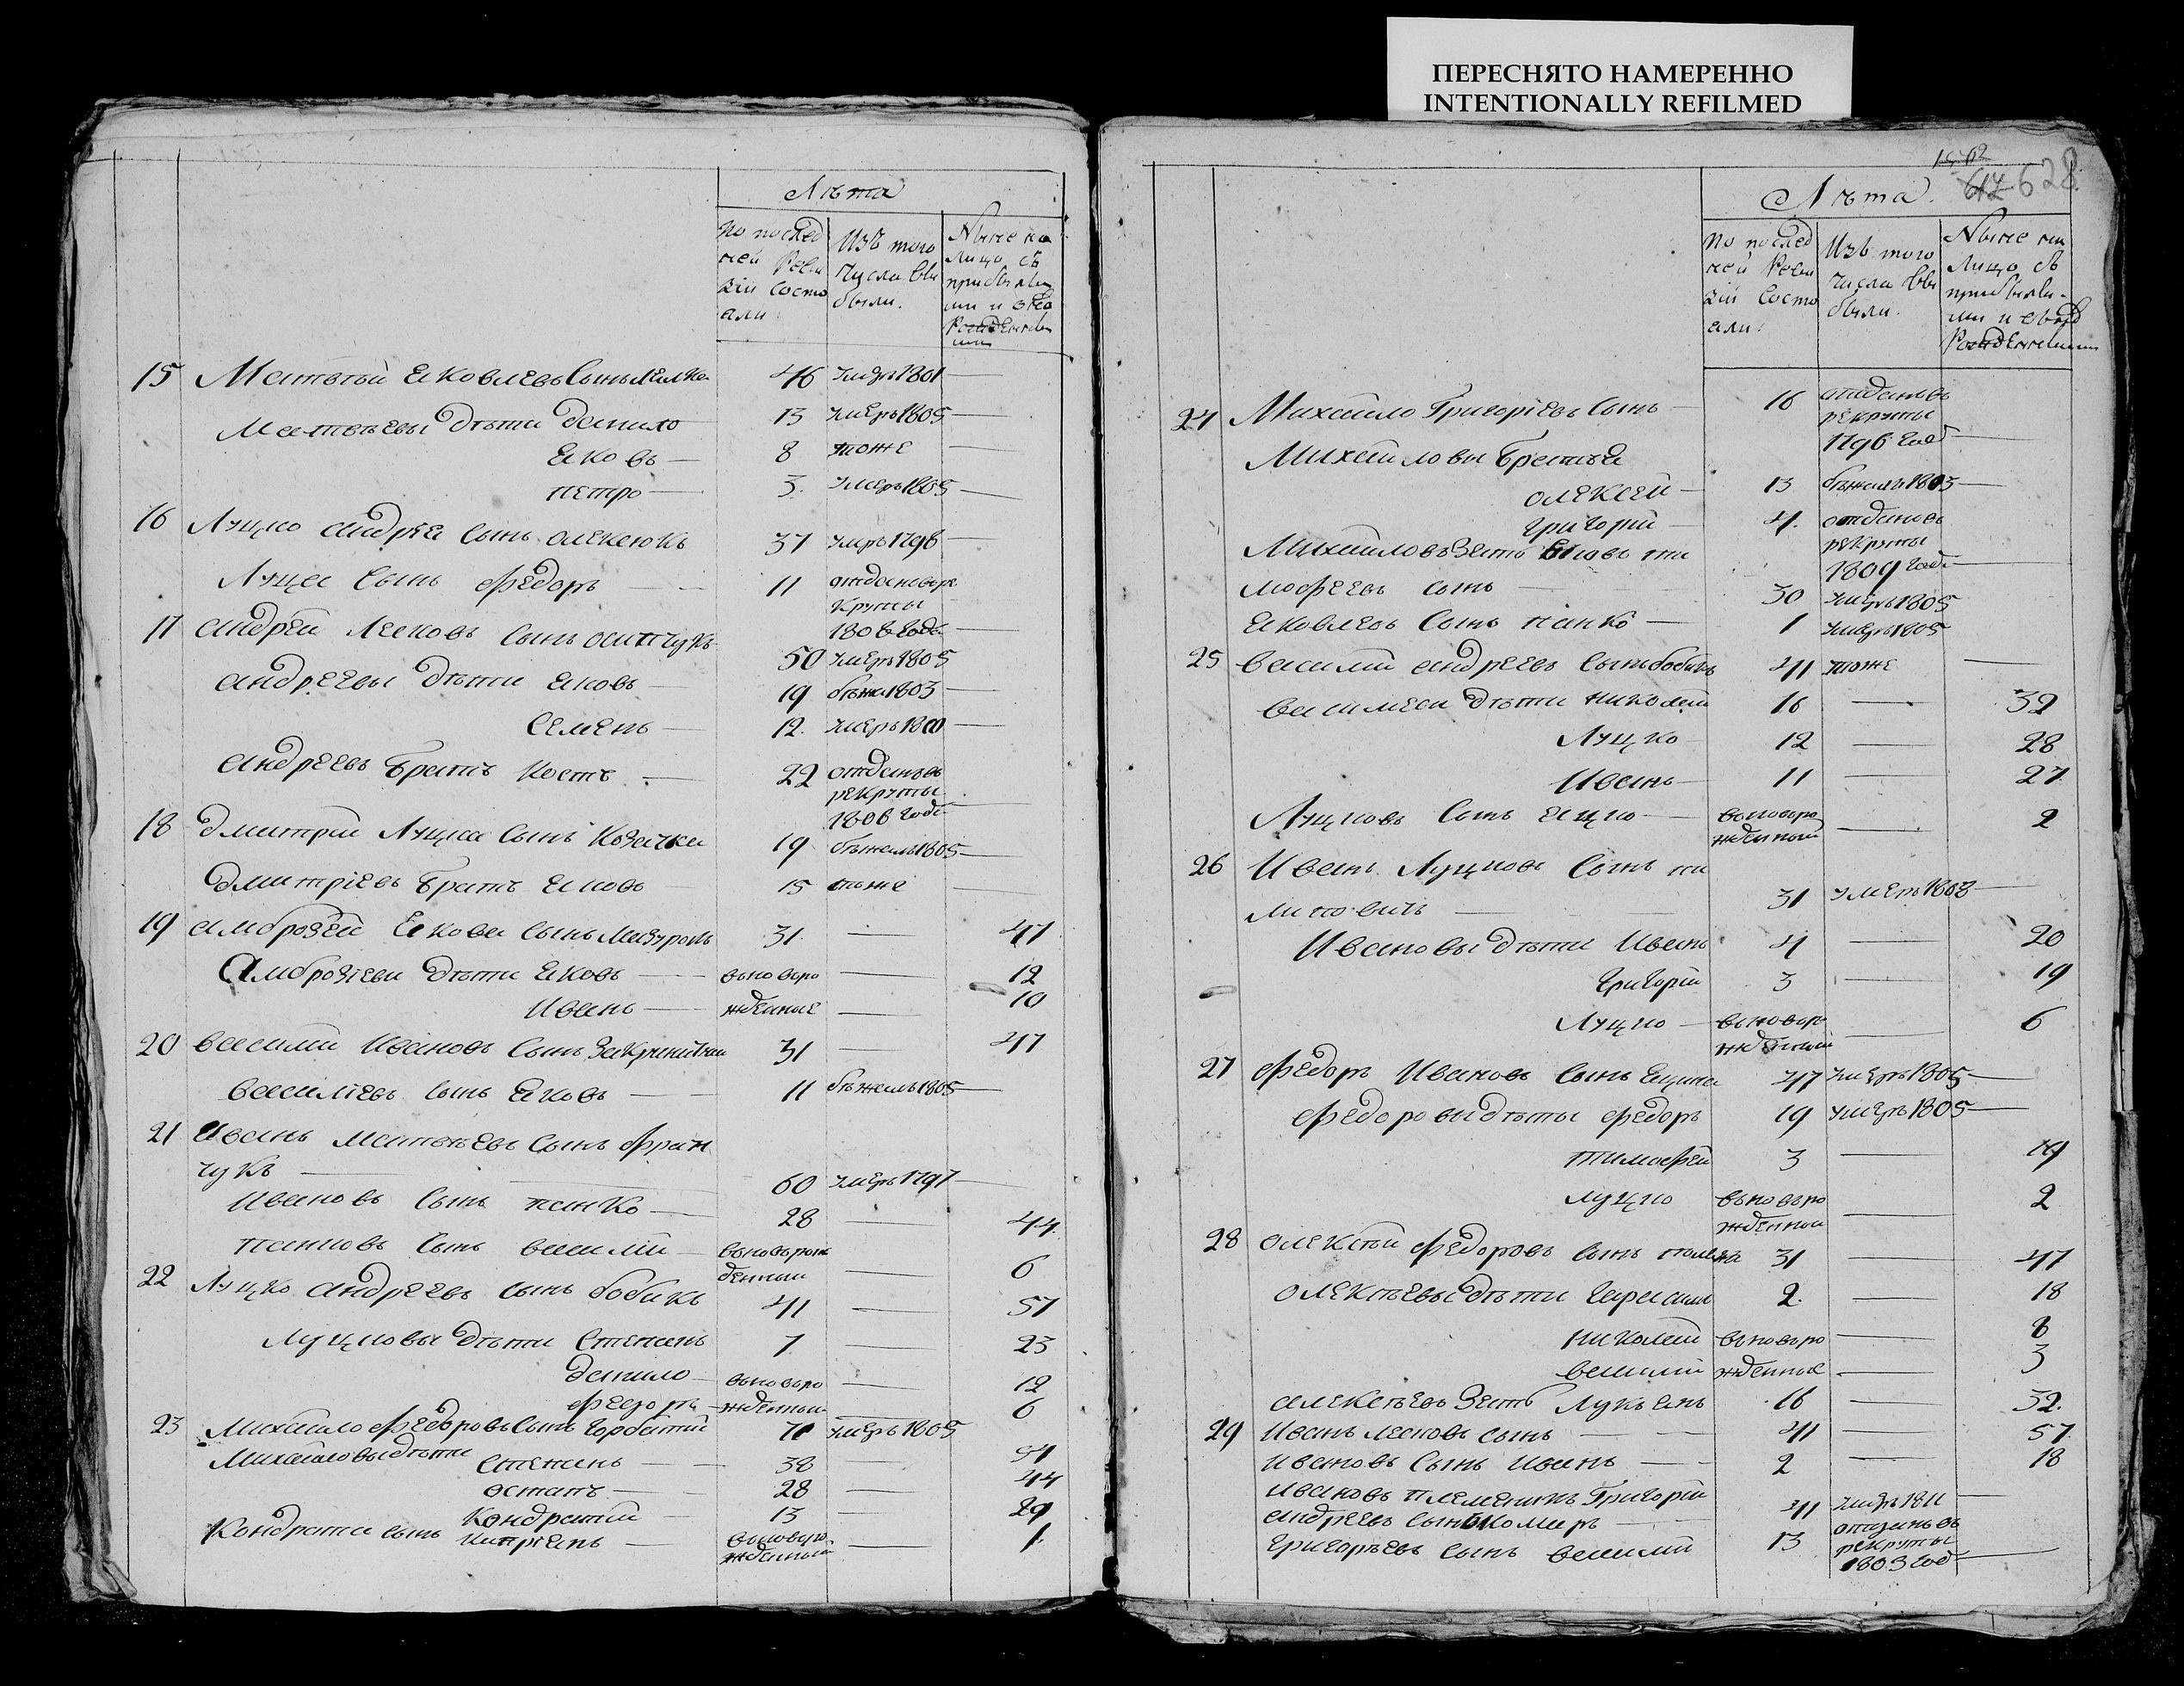 ПЕРЕСНЯТО НАМЕРЕННО
INTENTIONALLY REFILMED
Лѣта
По послед
ней Реви
зіи Состо
яли
Изъ того
числа вы
были.
Ныне на
Лицо съ
прибылы
ми и
15 Матвѣй Яковлевъ Сынъ 46 умеръ 1801 —
Матвѣевы дѣти Данило 13 умеръ 1805 —
Яковъ — 8 тоже —
петро — 3. умеръ 1805 —
16 Луцко андрѣя сынъ олексюкъ 37 умръ 1798 —
Луця Сынъ федоръ — 11 отданъ в ре
круты
180 годѣ —
17 андрей Лесковъ сынъ осипчукъ 50 умеръ 1805
андреевы дѣти яковъ 19 бежа 1803 —
Семенъ — 12. умеръ 1800 —
андреевъ братъ Костъ — 22 отданъ въ
рекруты
1806 годѣ —
18 дмитрий Луцка Сынъ Козачка 19 бѣжалъ 1805 —
дмитріевъ братъ яковъ 15 тоже —
19 амброзей якова сынъ Мазурокъ 31. — 47
Амброзіеви дѣти яковъ — вновъ ро — 12
Иванъ — жденные — 10
20 василий Ивановъ Сынъ 31 — 47
василіевъ сынъ яковъ — 11 бѣжалъ 1805 —
21 Иванъ матвѣевъ сынъ фран
чукъ — 60 умеръ 1797 —
Ивановъ сынъ панко — 28 — 44
панковъ сынъ василий — вновь рож
денный — 6
22 Луцко андреевъ сынъ бобикъ 41 — 57
Луцковы дѣти Степанъ 7 — 23
данило — вновъ ро — 12
федоръ — жденные — 6
23 Михайло федоровъ Сынъ Горбатий 70 умеръ 1805
Михайловы дѣти Степанъ — 38 — 54
остапъ — 28 — 44
Кондратий — 13 — 29
Кондрата сынъ киприянъ — вновъ ро
жденный — 1
628
Лѣта.
По послед
ней Реви
зіи Состо
яли.
Изъ того
числа вы
были.
Ныне на
Лицо съ
прибылы-
ми и
24 Михайло Григоріевъ Сынъ — 16 отданъ въ
рекруты
1796 год —
Михайловы братья
олексей — 13 бѣжалъ 1803 —
григорій — 4. отданъ въ
рекруты
1809 год —
Михайловъ Зять яковъ ти
мофеевъ сынъ — 30 умеръ 1805
яковлевъ сынъ панко — 1 умеръ 1805
25 василий андреевъ сынъ бобикъ 41 тоже —
василеви дѣти николай 16 — 32
Луцко 12 — 28
Иванъ — 11 — 27
Луцковъ сынъ яцко — вновъ ро
жденный — 2
26 Иванъ Луцковъ Сынъ ни
31 умеръ 1808 —
Ивановы дѣти Иванъ 4 — 20
григорій 3 — 19
Луцко — вновъ ро
жденный — 6
27 федоръ Ивановъ сынъ 47 умеръ 1805 —
федоровы дѣты федоръ 19 умеръ 1805 —
тимофей 3 — 19
луцко вновъ ро
жденной — 2
28 олексѣй федоровъ сынъ 31 — 47
олексѣевы дѣти Герасим 2. — 18
николай вновъ ро — 8
василий жденные — 3
алексѣевъ Зять Лукъянъ 16 — 32.
29 Иванъ лесковъ сынъ — 41 — 57.
Ивановъ сынъ Иванъ — 2 — 18
Ивановъ племеникъ Григорій
андреевъ сынъ Комаръ — 41 умеръ 1811 —
григоръевъ сынъ василий 13 отданъ въ
рекруты
1803 год —